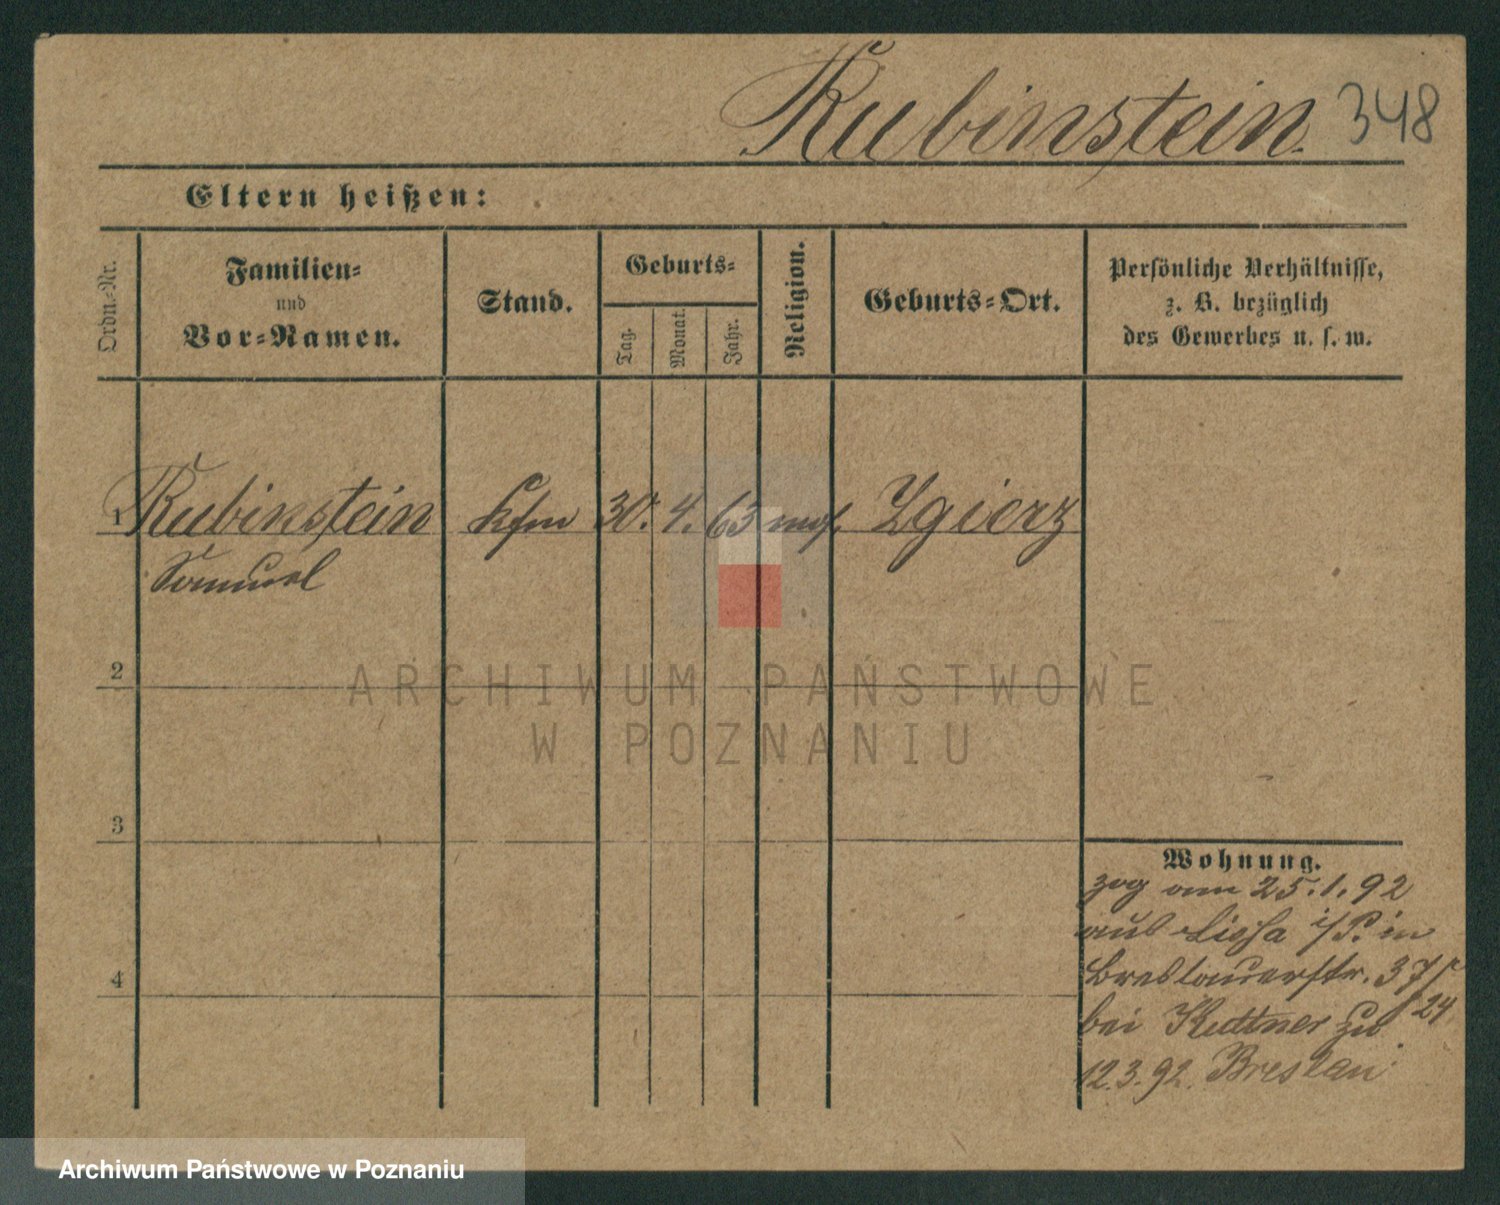 Rubinstein. 348
Eltern heißen:
Ordn.-Nr.
Familien-
und
Vor-Namen.
Stand.
Geburts-
Tag.
Monat.
Jahr.
Religion.
Geburts-Ort.
Persönliche Verhältnisse,
z. B. bezüglich
des Gewerbes u. s. w.
1 Rubinstein Kfm 30. 4. 63 mos. Zgierz
Samuel
2
3
4
Wohnung.
zog am 25.1.92
aus Lissa i/P. in
Breslauerstr. 37/
bei Kuttner zu 24
12.3.92. Breslau
ARCHIWUM PAŃSTWOWE
W POZNANIU
Archiwum Państwowe w Poznaniu